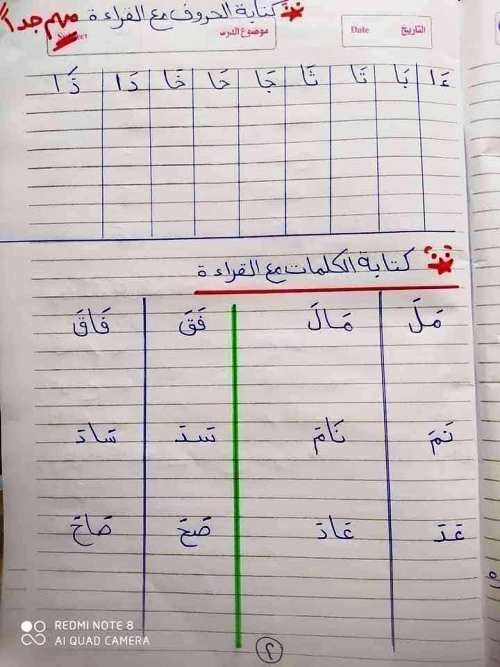 ** كتابة الحروف مع القراءة مهم جداً
موضوع الدرس
التاريخ Date
ءَا بَا تَا ثَا جَا حَا خَا دَا ذَا
** كتابة الكلمات مع القراءة
مَلَ مَالَ فَقَ فَاقَ
نَمَ نَامَ سَدَ سَادَ
عَدَ عَادَ صَحَ صَاحَ
٢
REDMI NOTE 8
AI QUAD CAMERA